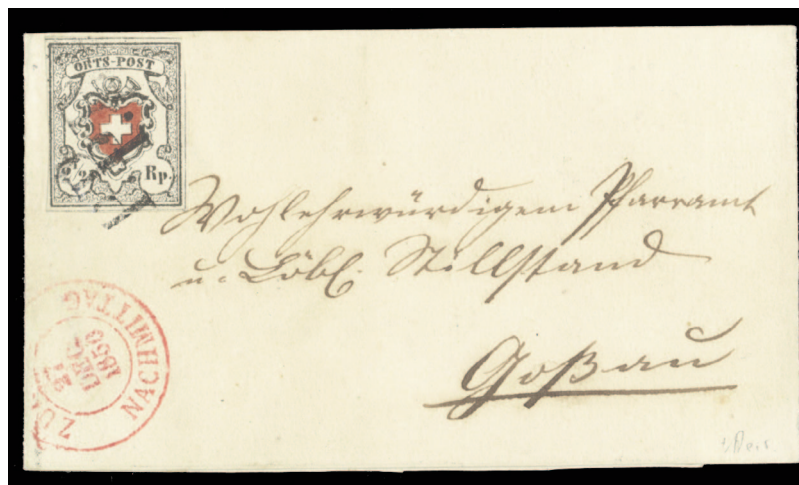 ORTS-POST
Rp.
Wohlehrwürdigem Pfarramt
u. Löbl. Stillstand
Goßau
NACHMITTAG
DEC
1850